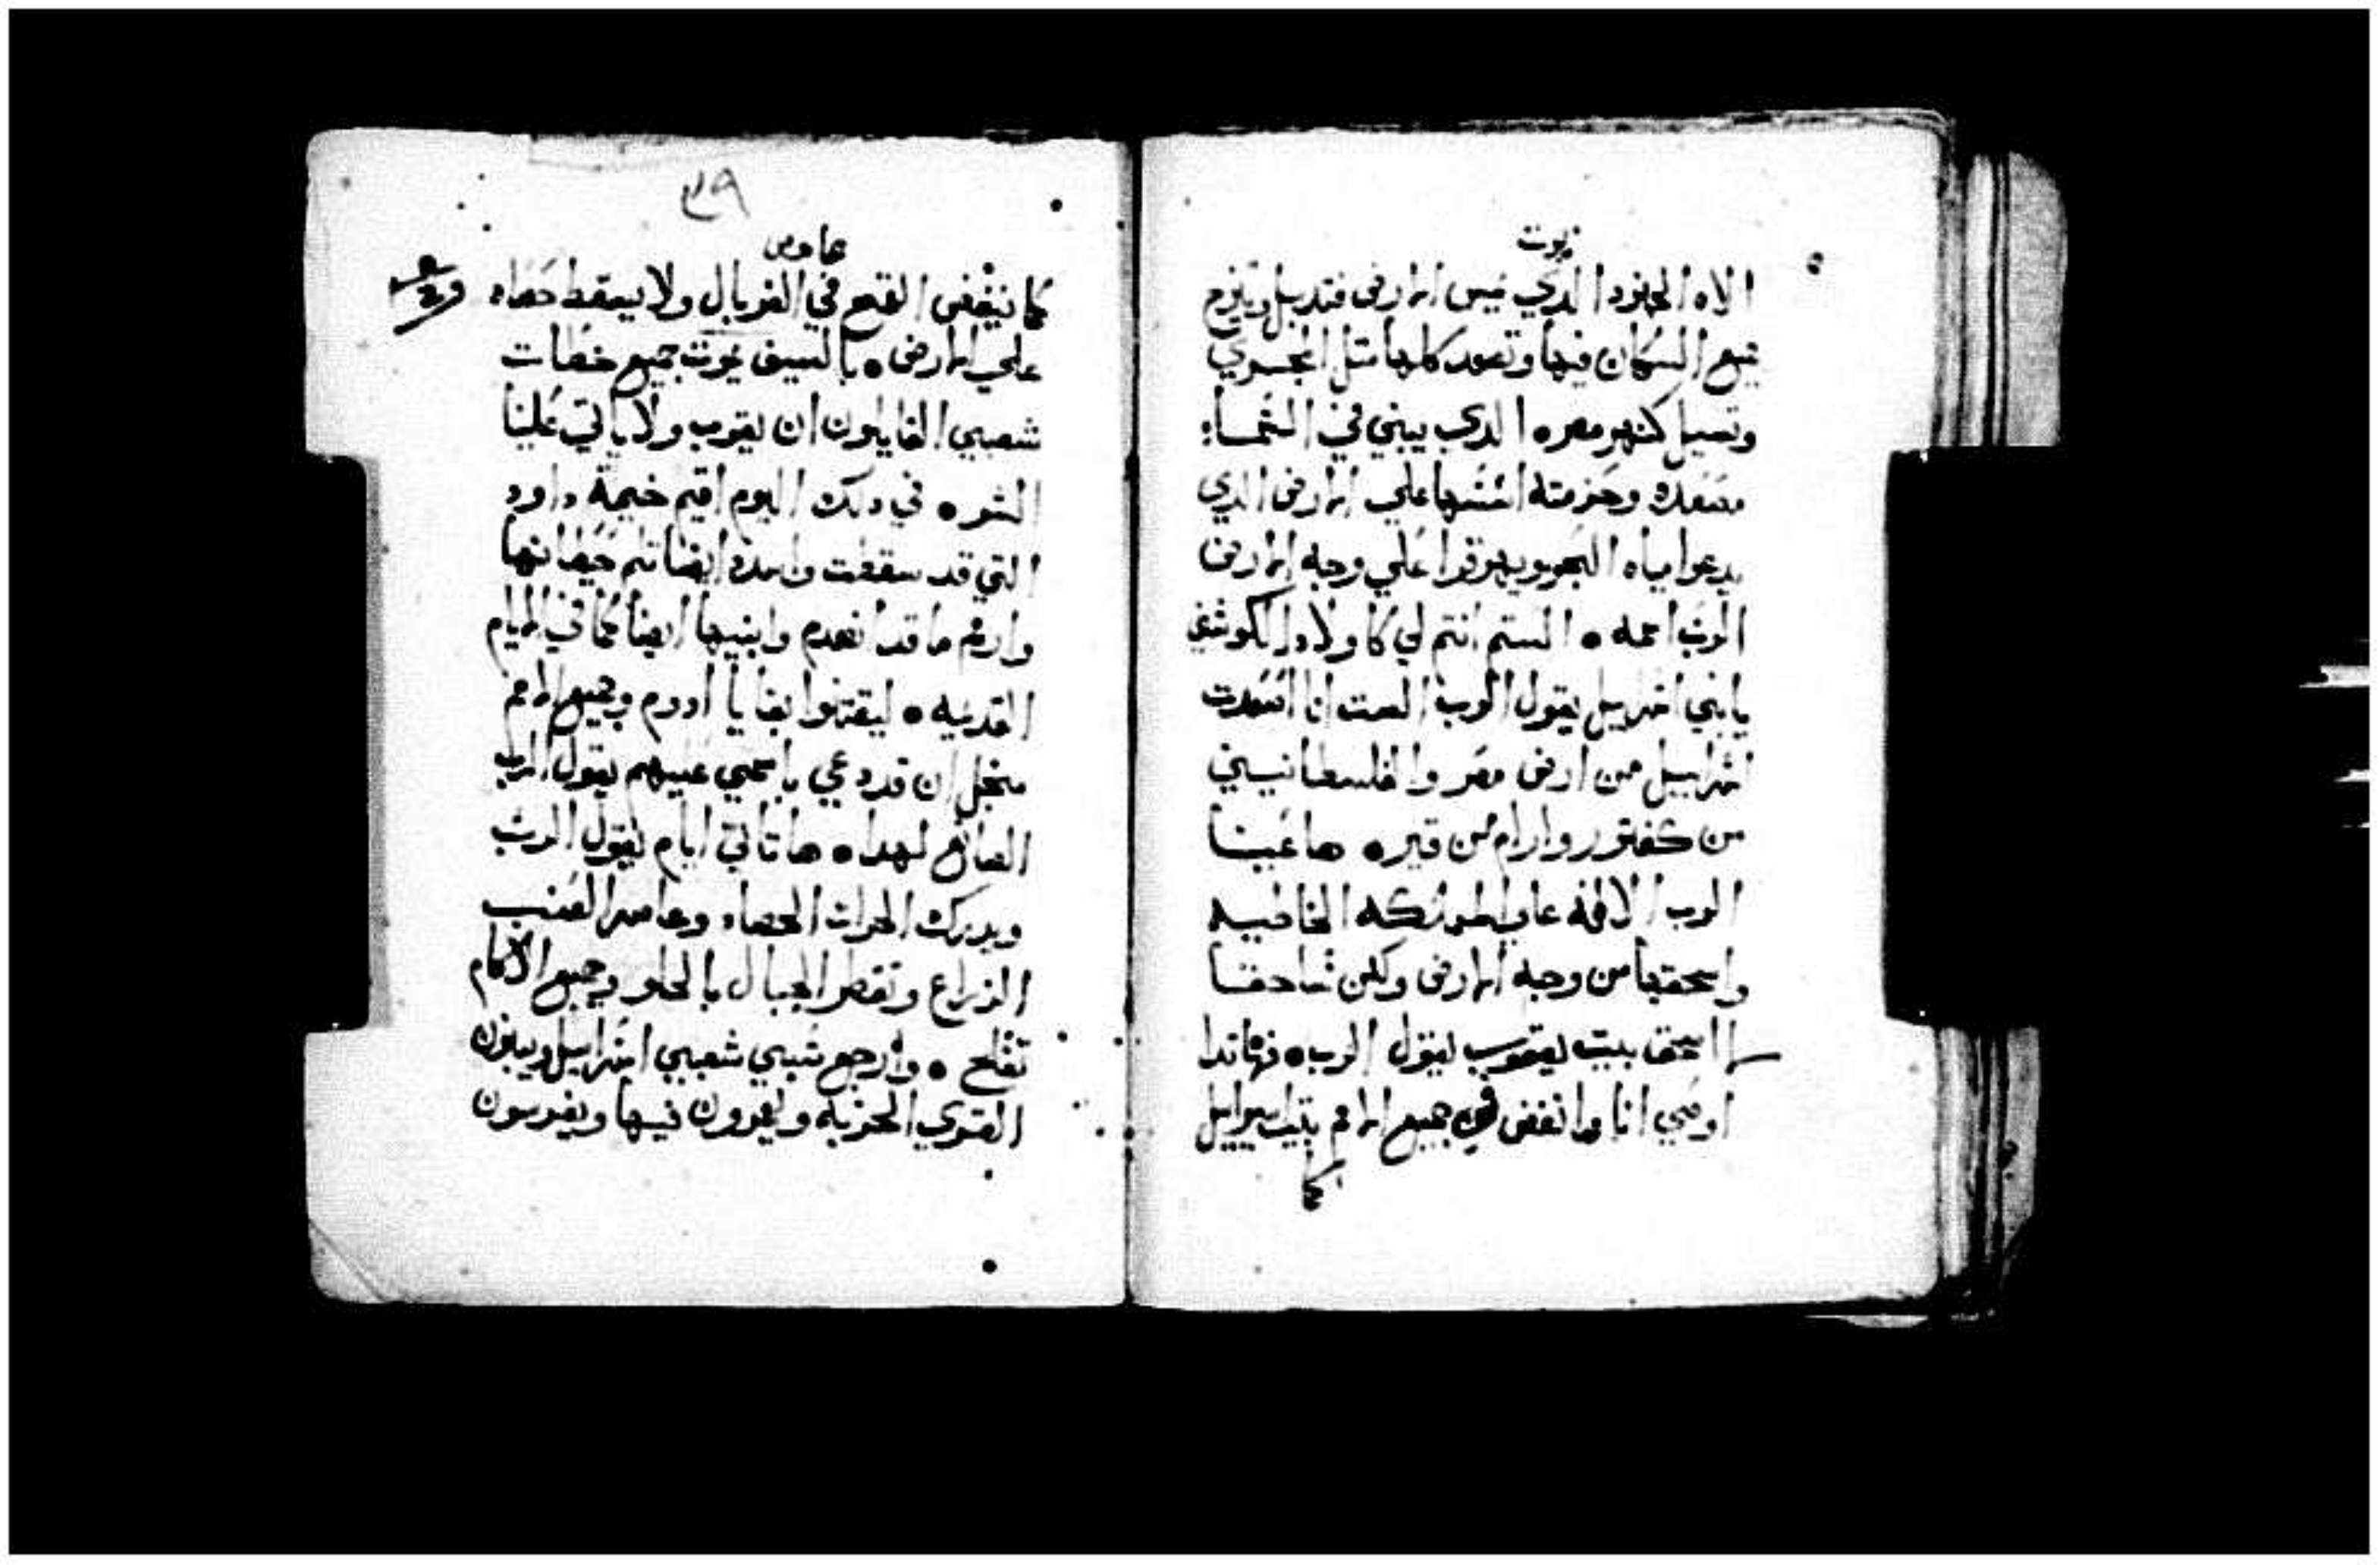 نبوت
الاه الجنود الدي يمس الارض فتدبل وينوح
جميع السكان فيها وتصعد كلها متل المجري
وتسيل كنهر مصر ه الدي يبني في السماء
مصعده وحزمته اسسها علي الارض الدي
يدعوا مياه البحر ويهرقها علي وجه الارض
الرب اسمه ه الستم انتم لي كاولاد الكوشفي
يابني اسراييل يقول الرب الست انا اصعدت
اسراييل من ارض مصر والفلسطانيين
من كفتور وارام من قير ه ها عينا
الرب الالاه علي المملكه الخاطيه
واسحقها من وجه الارض ولكن سحقا
لا اسحق بيت يعقوب يقول الرب ه فهاندا
اوصي انا وانفض في جميع الامم بيت اسراييل
كما
٣٩
عاموص
كما ينفض القمح في الغربال ولا يسقط حصاه
علي الارض ه بالسيف يموت جميع خطات
شعبي القايلون ان يقرب ولا ياتي علينا
الشر ه في دلك اليوم اقيم خيمة داود
التي قد سقطت واسد ايضا تلم حيطانها
وارم ما قد انهدم وابنيها ايضا كما في الايام
القديمه ه ليقتنوا بقايا ادوم وجميع الامم
منجل ان قد دعي باسمي عليهم يقول الرب
الصانع لهدا ه ها تاتي ايام يقول الرب
ويدرك الحرات الحصاد وعاصر العنب
الزراع وتقطر الجبال بالحلو وجميع الاكام
تفلح ه وارجع سبي شعبي اسراييل ويبنون
القري الخربه ويعمرون فيها ويغرسون